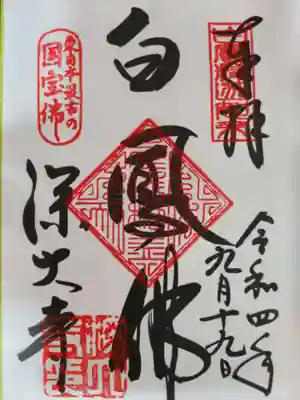 奉拝
令和四年
九月十九日
白鳳佛
東日本最古の
国宝佛
深大寺